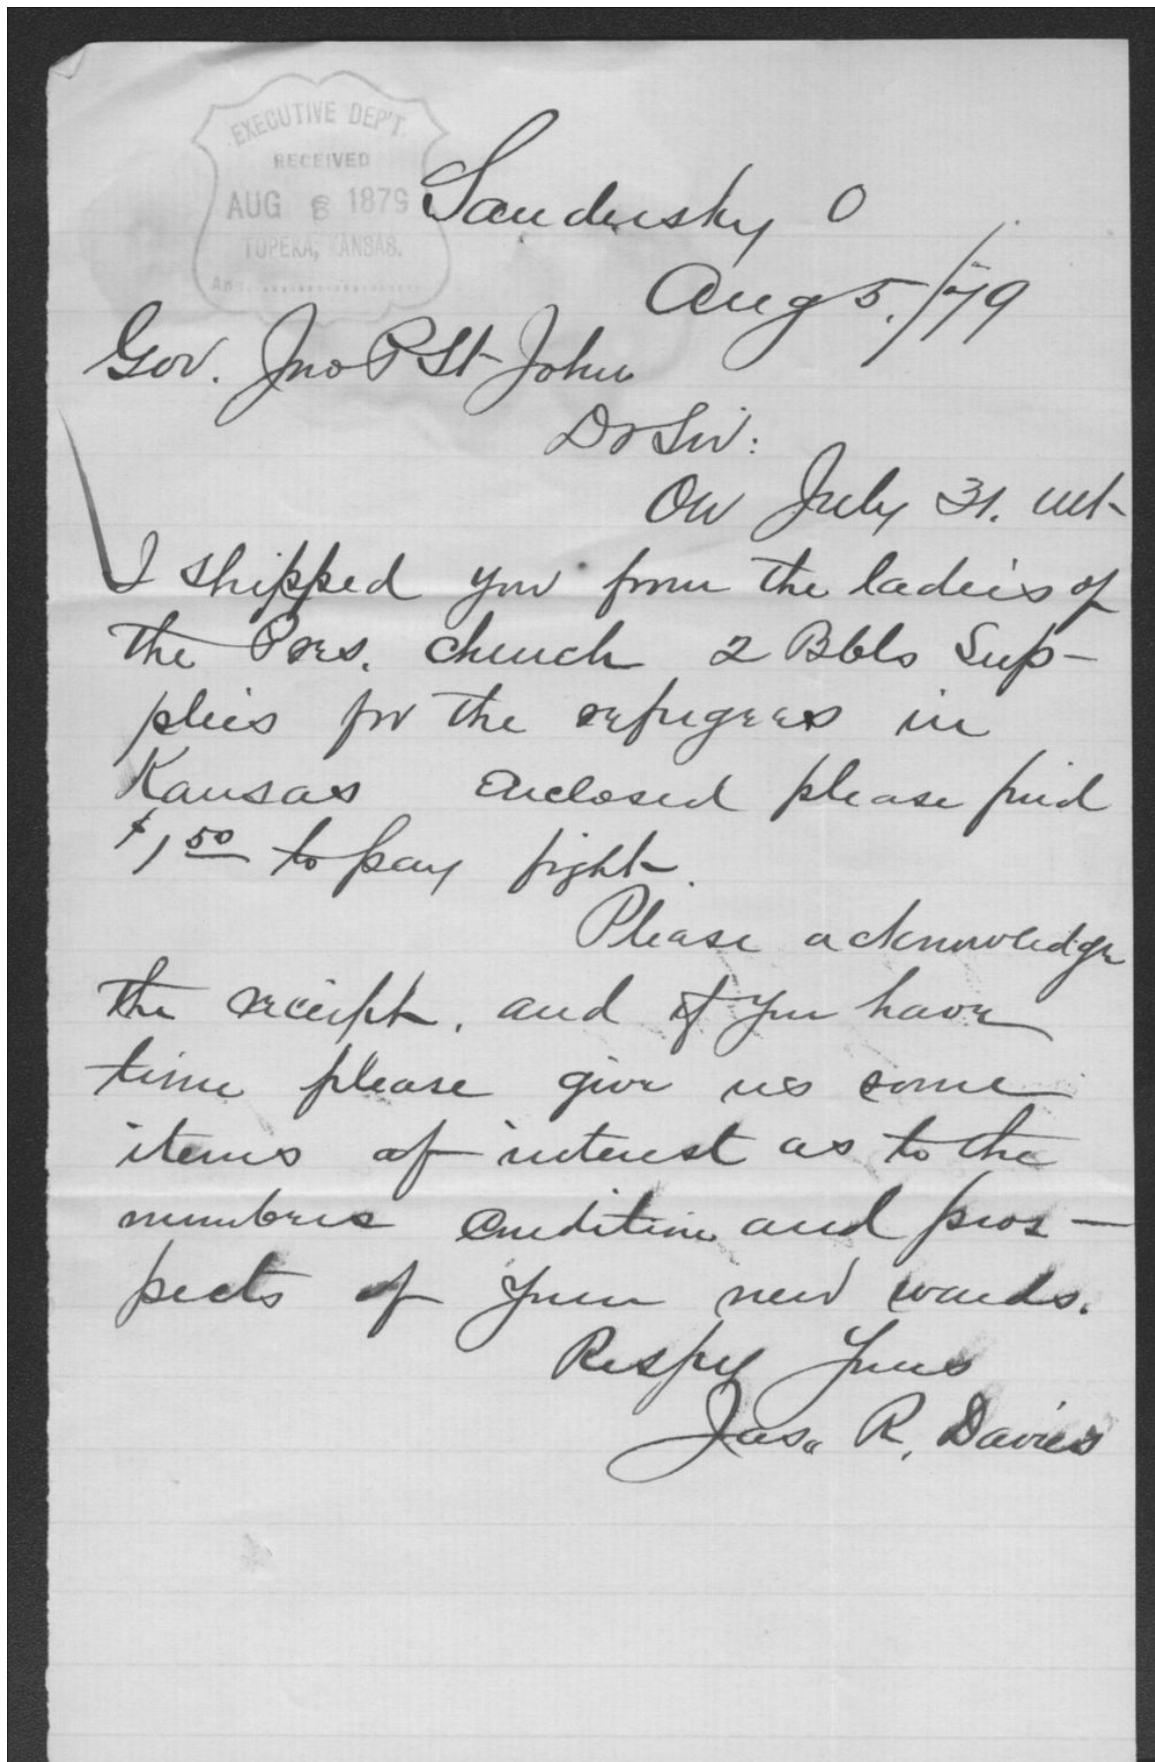 EXECUTIVE DEP'T.
RECEIVED
AUG 8 1879
TOPEKA, KANSAS.
Ans.
Sandusky O
Aug 5./79
Gov. Jno P St John
Dr Sir:
On July 31. ult
I shipped you from the ladies of
the Pres. church 2 Bbls Sup-
plies for the refugees in
Kansas enclosed please find
$1,50 to pay fight.
Please acknowledge
the receipt, and if you have
time please give us some
items of interest as to the
numbers condition and pros-
pects of your new wards.
Respy Yours
Jas. R. Davies